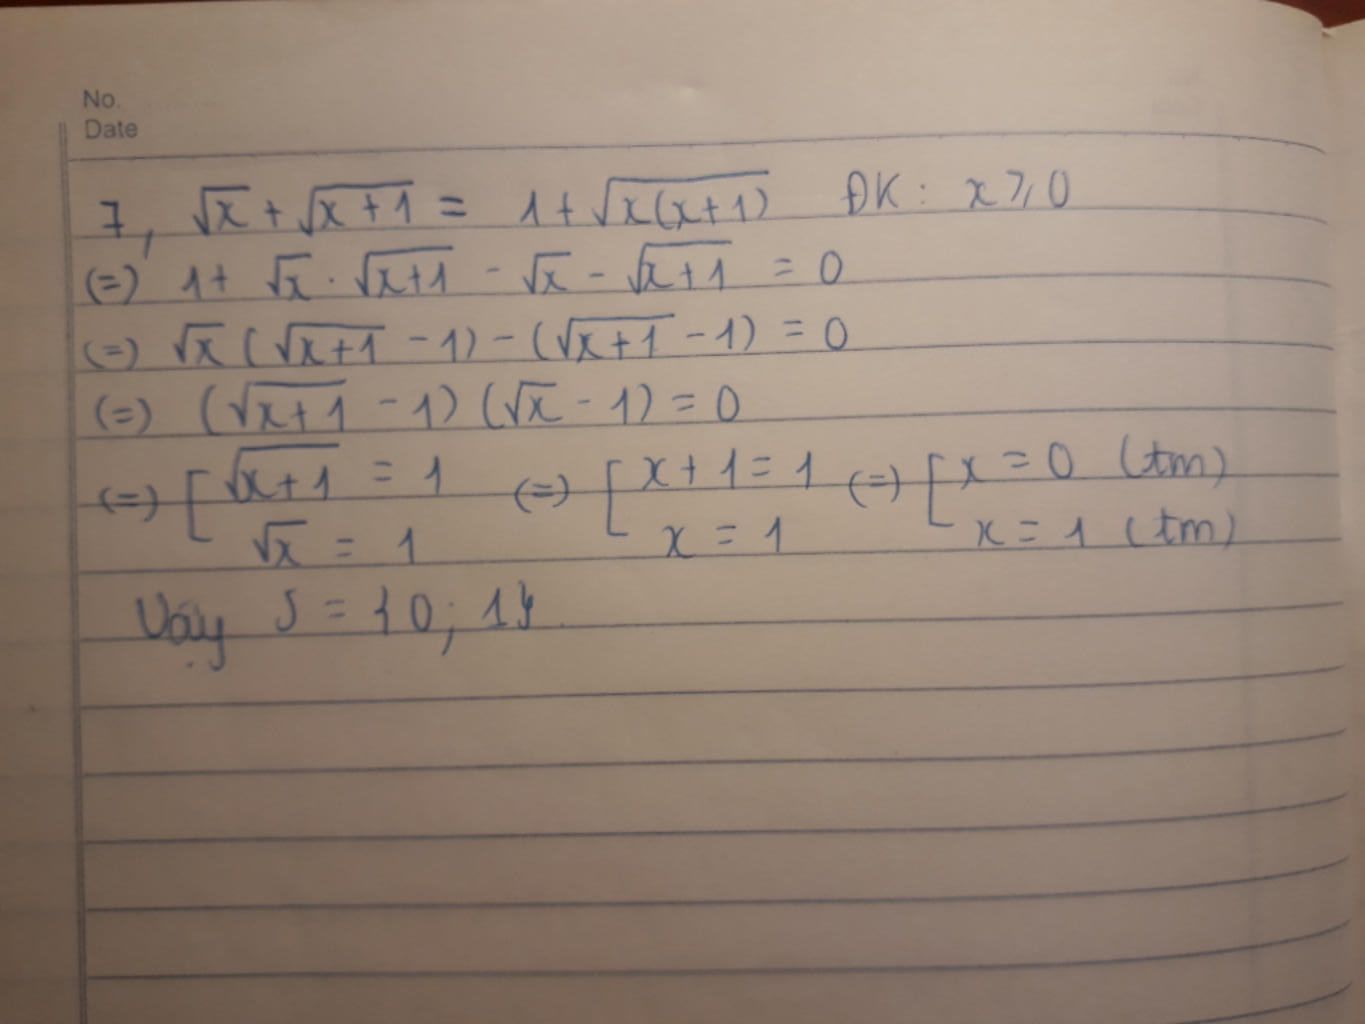 No.
Date
7, √x + √(x+1) = 1 + √(x(x+1)) ĐK: x ⩾ 0
(=) 1 + √x . √(x+1) - √x - √(x+1) = 0
(=) √x (√(x+1) - 1) - (√(x+1) - 1) = 0
(=) (√(x+1) - 1) (√x - 1) = 0
(=) [ √(x+1) = 1 (=) [ x + 1 = 1 (=) [ x = 0 (tm)
√x = 1 x = 1 x = 1 (tm)
Vậy S = {0; 1}